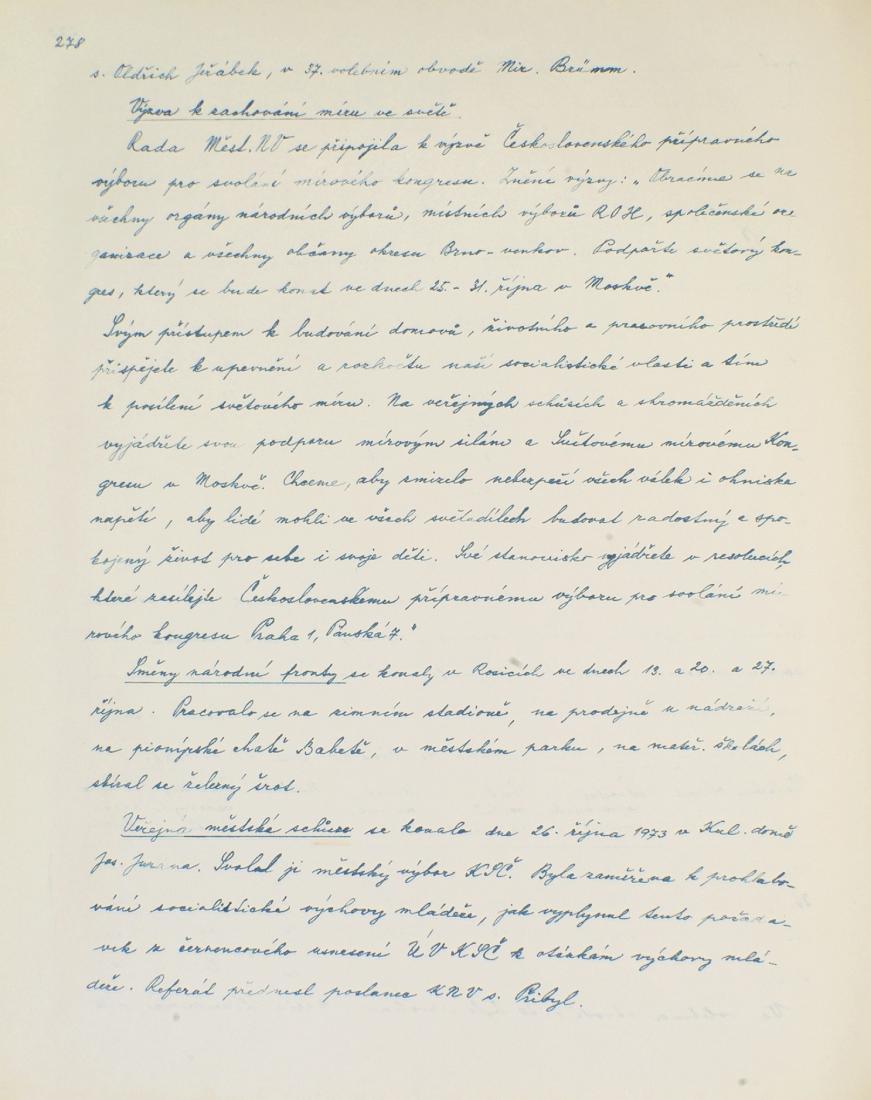 278
s. Oldřich Jeřábek, v 37. volebním obvodě Mir. Brümm.
Výzva k zachování míru ve světě.
Rada Měst. NV se připojila k výzvě Československého přípravného
výboru pro svolání mírového kongresu. Znění výzvy: „Obracíme se na
všechny orgány národních výborů, místních výborů ROH, společenské or-
ganizace a všechny občany okresu Brno-venkov. Podpořte světový kon-
gres, který se bude konat ve dnech 25.-31. října v Moskvě."
Svým přístupem k budování domovů, životního a pracovního prostředí
přispějete k upevnění a rozkvětu naší socialistické vlasti a tím
k posílení světového míru. Na veřejných schůzích a shromážděních
vyjádřete svou podporu mírovým silám a Světovému mírovému Kon-
gresu v Moskvě. Chceme, aby zmizelo nebezpečí všech válek i ohniska
napětí, aby lidé mohli ve všech světadílech budovat radostný a spo-
kojený život pro sebe i svoje děti. Své stanovisko vyjádřete v resolucích,
které zasílejte Československému přípravnému výboru pro svolání mí-
rového kongresu Praha 1, Panská 7."
Směny národní fronty se konaly v Rosicích ve dnech 13. a 20. a 27.
října. Pracovalo se na zimním stadioně, na prodejně u nádraží,
na pionýrské chatě Babetě, v městském parku, na mateř. školách,
sbíral se železný šrot.
Veřejná městská schůze se konala dne 26. října 1973 v Kul. domě
Jos. . Svolal ji městský výbor KSČ. Byla zaměřena k prohlubo-
vání socialistické výchovy mládeže, jak vyplynul tento požada-
vek z červencového usnesení ÚV KSČ k otázkám výchovy mlá-
deže. Referát přednesl poslanec KNV s. Přibyl.